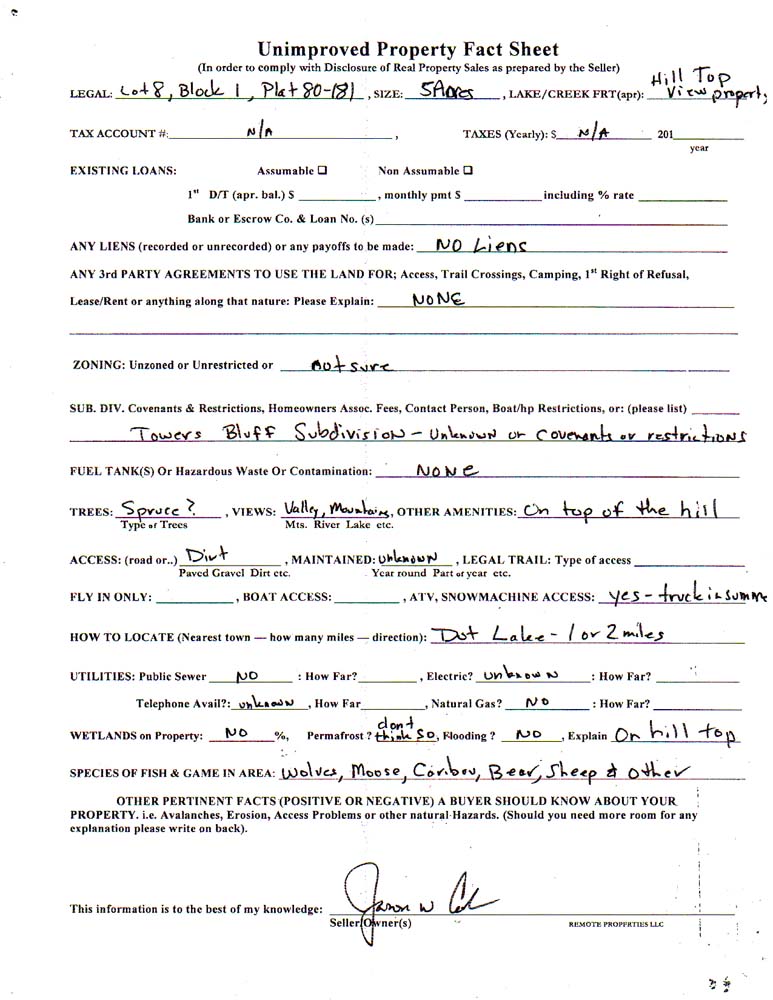 Unimproved Property Fact Sheet
(In order to comply with Disclosure of Real Property Sales as prepared by the Seller)
LEGAL: Lot 8, Block 1, Plat 80-181, SIZE: 5 Acres, LAKE/CREEK FRT(apr): Hill Top View property
TAX ACCOUNT #: N/A, TAXES (Yearly): $ N/A 201____
year
EXISTING LOANS: Assumable ☐ Non Assumable ☐
1st D/T (apr. bal.) $ ____, monthly pmt $ ____ including % rate ____
Bank or Escrow Co. & Loan No. (s)____
ANY LIENS (recorded or unrecorded) or any payoffs to be made: NO Liens
ANY 3rd PARTY AGREEMENTS TO USE THE LAND FOR; Access, Trail Crossings, Camping, 1st Right of Refusal,
Lease/Rent or anything along that nature: Please Explain: NONE
ZONING: Unzoned or Unrestricted or not sure
SUB. DIV. Covenants & Restrictions, Homeowners Assoc. Fees, Contact Person, Boat/hp Restrictions, or: (please list) ____
Towers Bluff Subdivision - Unknown of covenants or restrictions
FUEL TANK(S) Or Hazardous Waste Or Contamination: NONE
TREES: Spruce?, VIEWS: Valley, Mountains, OTHER AMENITIES: On top of the hill
Type of Trees Mts. River Lake etc.
ACCESS: (road or..) Dirt, MAINTAINED: Unknown, LEGAL TRAIL: Type of access ____
Paved Gravel Dirt etc. Year round Part of year etc.
FLY IN ONLY: ____, BOAT ACCESS: ____, ATV, SNOWMACHINE ACCESS: yes - truck in summe
HOW TO LOCATE (Nearest town — how many miles — direction): Dot Lake - 1 or 2 miles
UTILITIES: Public Sewer NO : How Far? ____, Electric? Unknown : How Far? ____
Telephone Avail?: unknown, How Far ____, Natural Gas? NO : How Far? ____
WETLANDS on Property: NO %, Permafrost? dont think so, Flooding? NO, Explain On hill top
SPECIES OF FISH & GAME IN AREA: Wolves, Moose, Caribou, Bear, Sheep & other
OTHER PERTINENT FACTS (POSITIVE OR NEGATIVE) A BUYER SHOULD KNOW ABOUT YOUR
PROPERTY. i.e. Avalanches, Erosion, Access Problems or other natural Hazards. (Should you need more room for any
explanation please write on back).
This information is to the best of my knowledge: Jason W
Seller/Owner(s) REMOTE PROPERTIES LLC